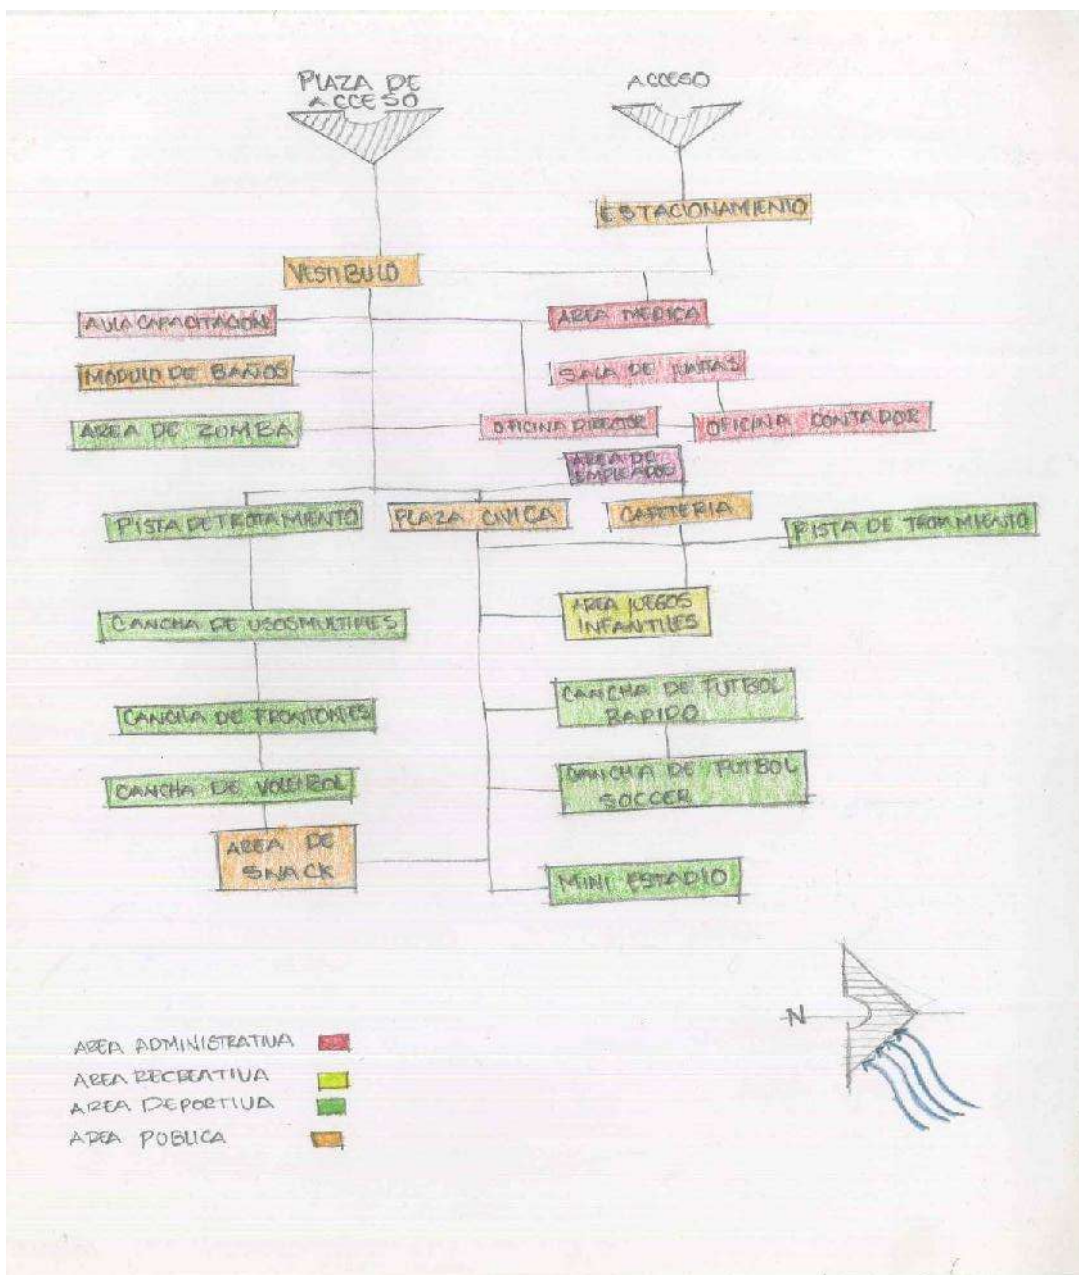 PLAZA DE
ACCESO
ACCESO
ESTACIONAMIENTO
VESTIBULO
AULA CAPACITACION
AREA MEDICA
MODULO DE BAÑOS
SALA DE JUNTAS
AREA DE ZUMBA
OFICINA DIRECTOR
OFICINA CONTADOR
AREA DE
EMPLEADOS
PISTA DE TROTAMIENTO
PLAZA CIVICA
CAFETERIA
PISTA DE TROTAMIENTO
CANCHA DE USOSMULTIPLES
AREA JUEGOS
INFANTILES
CANCHA DE FRONTONES
CANCHA DE FUTBOL
RAPIDO
CANCHA DE VOLEIBOL
CANCHA DE FUTBOL
SOCCER
AREA DE
SNACK
MINI ESTADIO
N
AREA ADMINISTRATIVA
AREA RECREATIVA
AREA DEPORTIVA
AREA PUBLICA